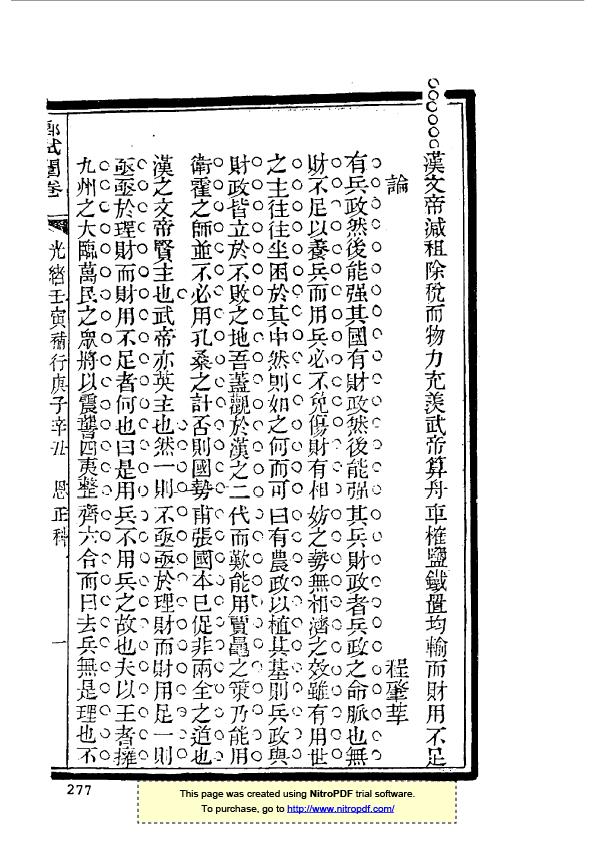 漢文帝減租除稅而物力充羨武帝算舟車榷鹽鐵置均輸而財用不足
論
程肇莘
有兵政然後能强其國有財政然後能强其兵財政者兵政之命脈也無
財不足以養兵而用兵必不免傷財有相妨之勢無相濟之效雖有用世
之主往往坐困於其中然則如之何而可曰有農政以植其基則兵政與
財政皆立於不敗之地吾蓋觀於漢之二代而歎能用賈鼂之策乃能用
衛霍之師並不必用孔桑之計否則國勢甫張國本已促非兩全之道也
漢之文帝賢主也武帝亦英主也然一則不亟亟於理財而財用足一則
亟亟於理財而財用不足者何也曰是用兵不用兵之故也夫以王者擁
九州之大臨萬民之眾將以震讋四夷整齊六合而曰去兵無是理也不
鄉試闈卷
光緒壬寅補行庚子辛丑恩正科
一
277
This page was created using NitroPDF trial software.
To purchase, go to http://www.nitropdf.com/